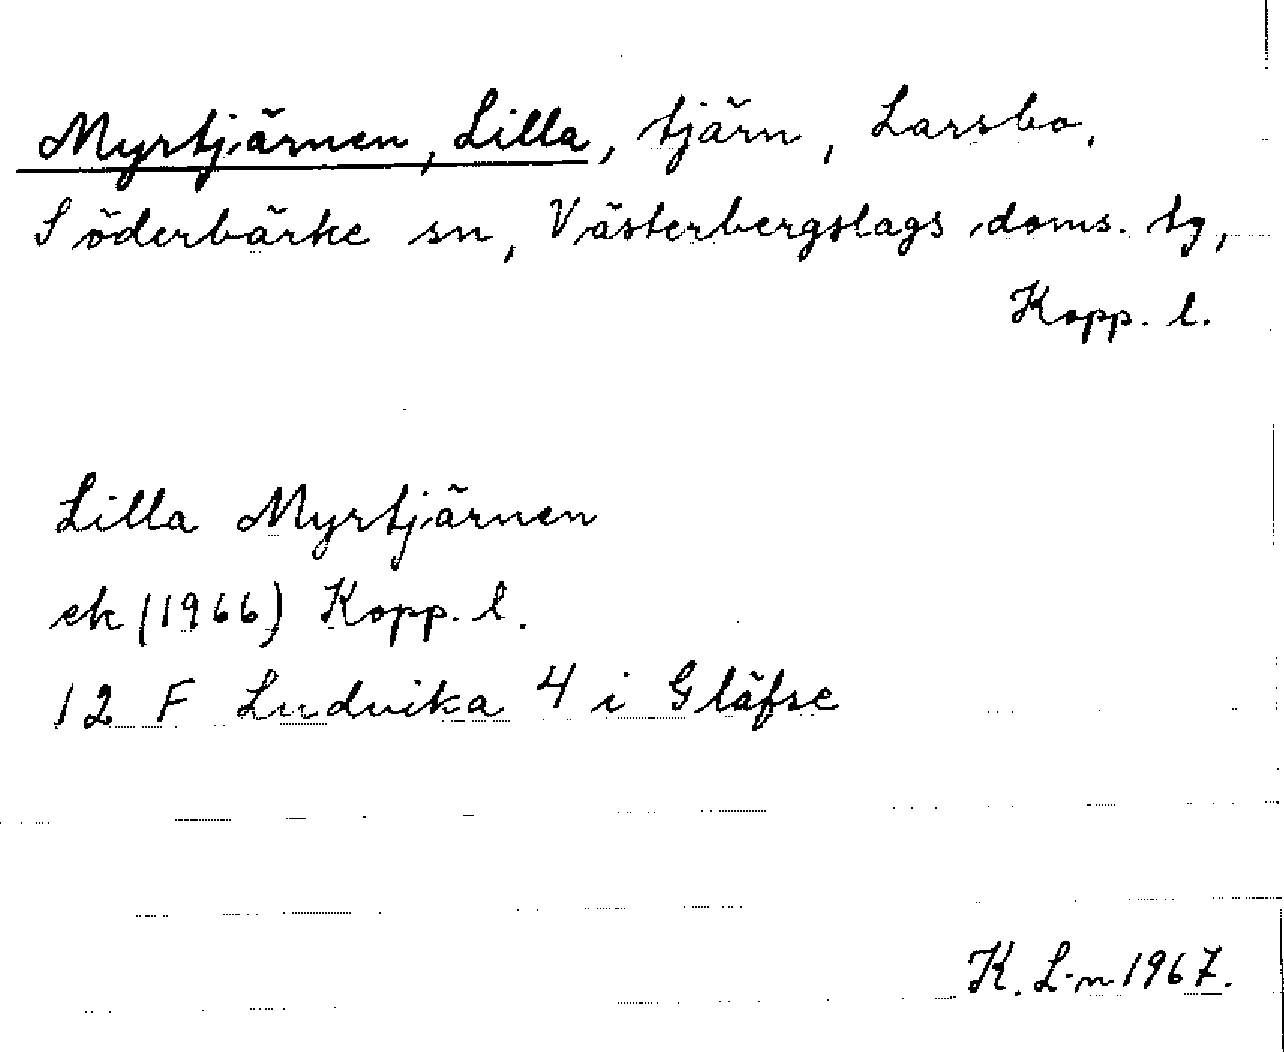 Myrtjärnen, Lilla, tjärn, Larsbo,
Söderbärke sn, Västerbergslags doms. tg,
Kopp. l.
Lilla Myrtjärnen
ek (1966) Kopp. l.
12 F Ludvika 4 i Gläfse
K. L-n 1967.